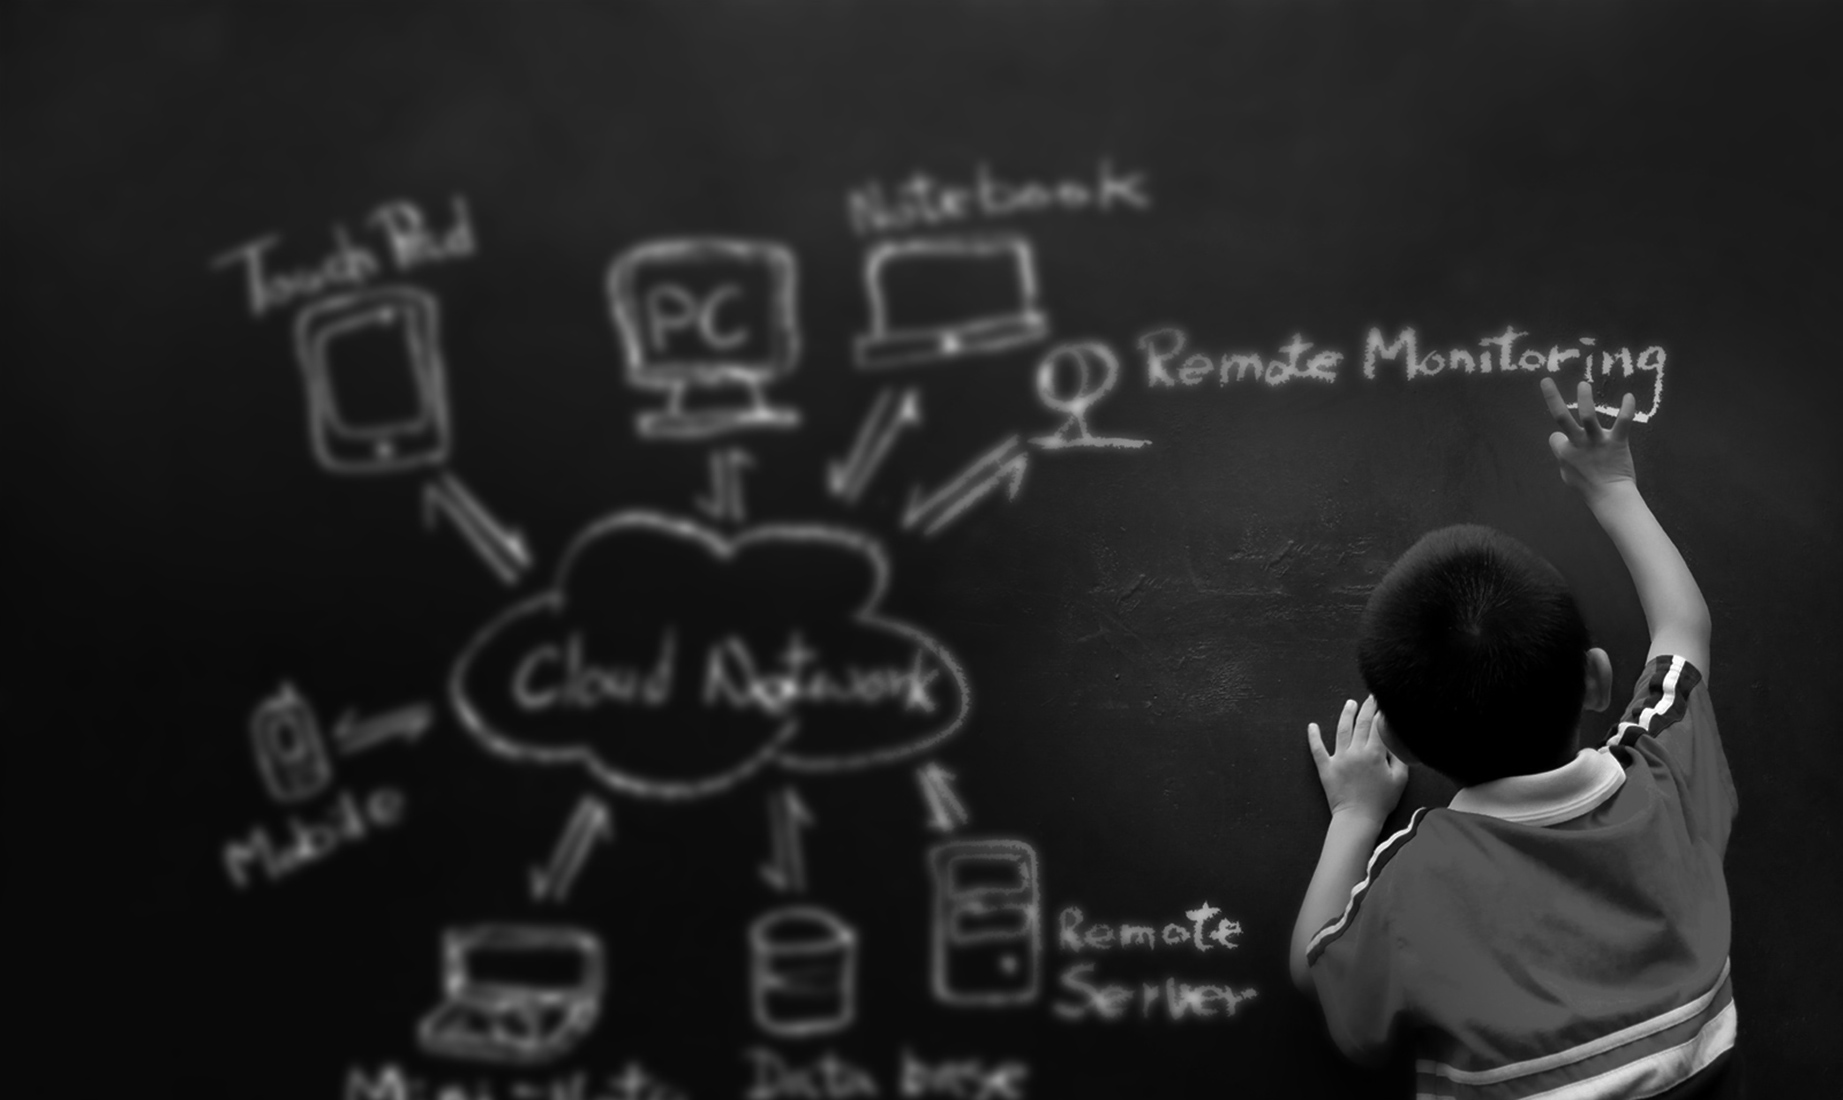 Notebook
Touch Pad
PC
Remote Monitoring
Cloud Network
Mobile
Remote
Server
Mini-Note
Data base